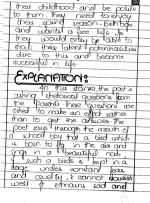 their childhood and be polite
to them they need to enjoy
their young season
and wanted a free life if
they would only be able to
that their latent potentialities
due to this and become
successful in life.
EXPLANATION:
In this stanza, the poet is
asking rhetorical questions from
the parents these questions are
asked to make an effect rather
than to get the answers the
poet says through the mouth of
a school boy that a bird which
is born to fly in the air and
joys in a beautiful
if such a birds is kept in a
cage under constant fear
and cruelty, it can flourish
sad and